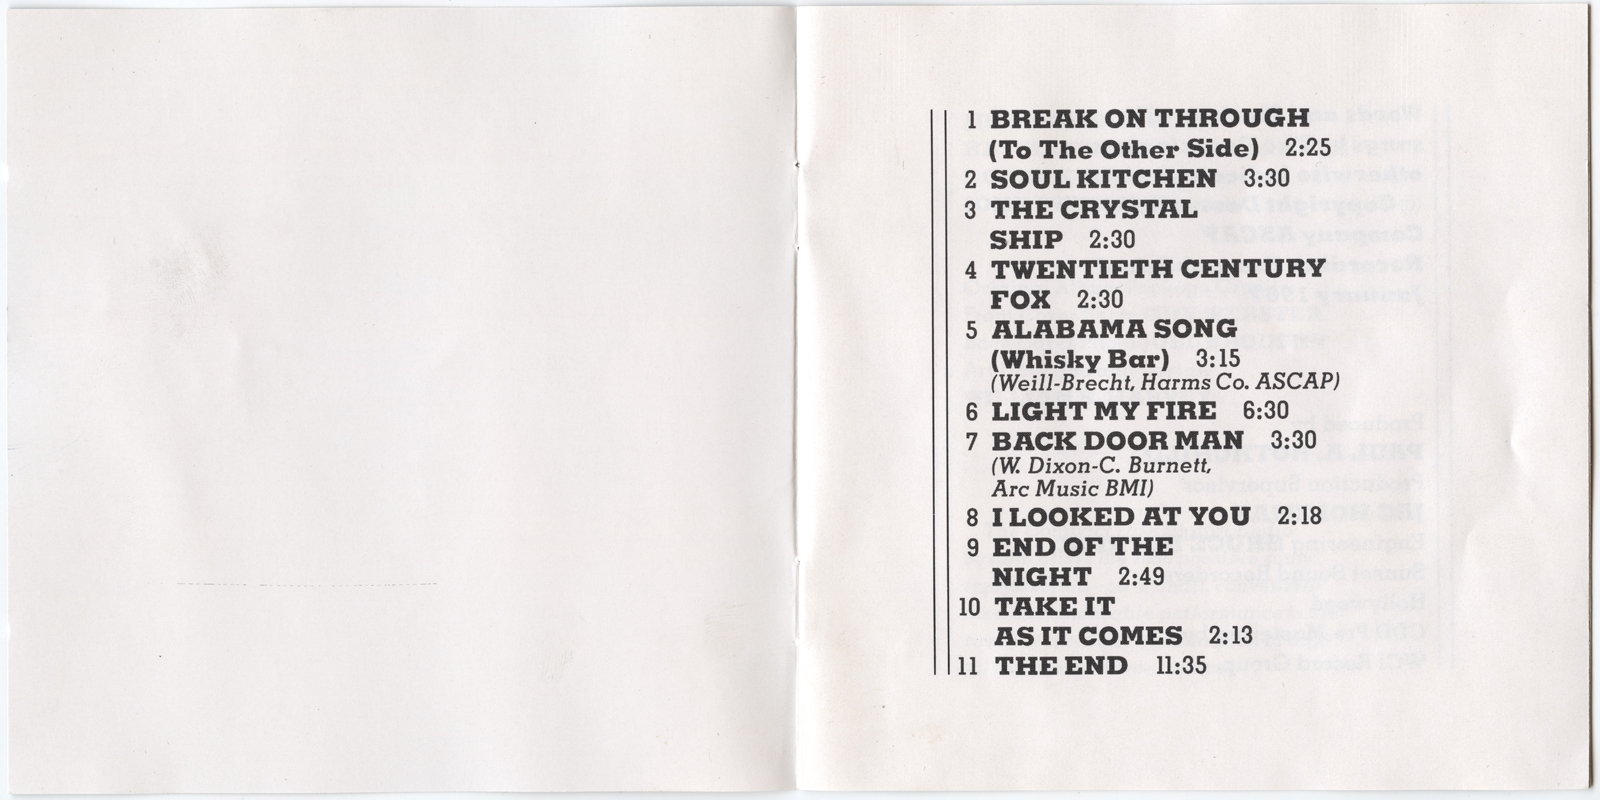 1 BREAK ON THROUGH
(To The Other Side) 2:25
2 SOUL KITCHEN 3:30
3 THE CRYSTAL
SHIP 2:30
4 TWENTIETH CENTURY
FOX 2:30
5 ALABAMA SONG
(Whisky Bar) 3:15
(Weill-Brecht, Harms Co. ASCAP)
6 LIGHT MY FIRE 6:30
7 BACK DOOR MAN 3:30
(W. Dixon-C. Burnett,
Arc Music BMI)
8 I LOOKED AT YOU 2:18
9 END OF THE
NIGHT 2:49
10 TAKE IT
AS IT COMES 2:13
11 THE END 11:35